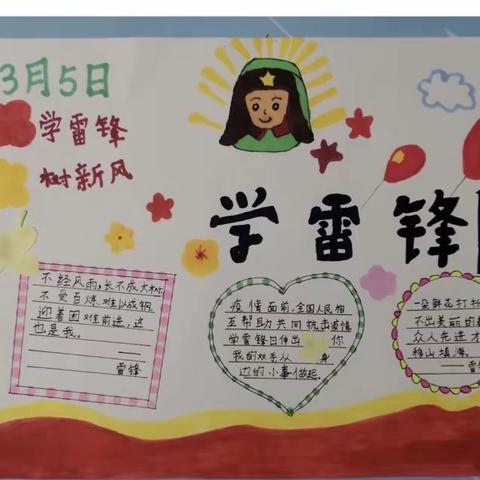 3月5日
学雷锋
树新风
学雷锋
不经风雨,长不成大树
不受百炼,难以成钢
迎着困难前进,这
也是我。
——雷锋
疫情面前,全国人民相
互帮助共同抗击疫情
学雷锋日伸出 你
我的双手从 身
边的小事做起。
一朵鲜花打扮
不出美丽的春
众人先进才
移山填海。
——雷